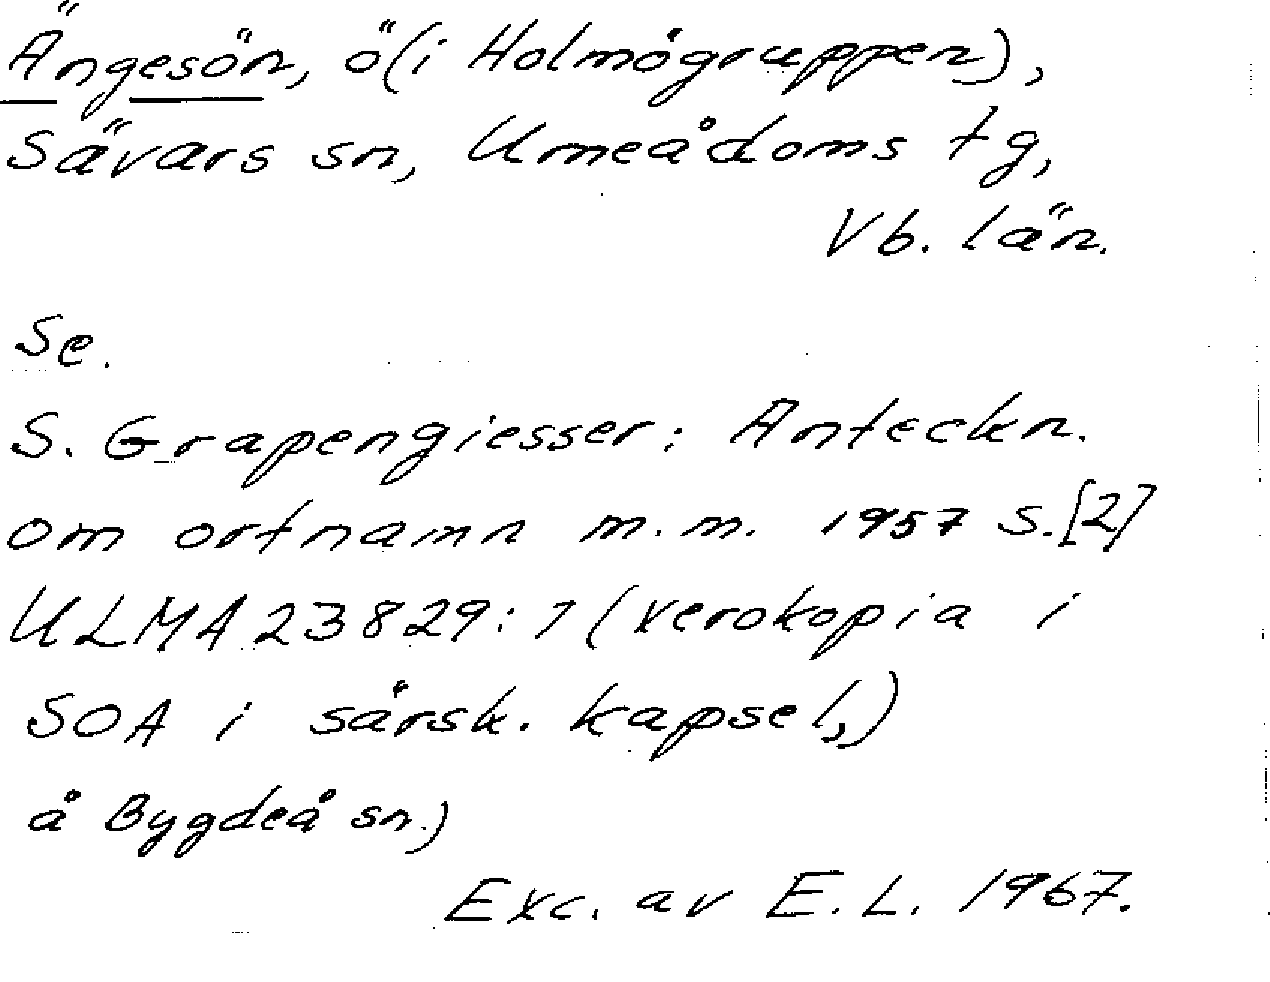 Ängesön, ö (i Holmögruppen),
Sävars sn, Umeådoms tg,
Vb. län.
Se.
S. Grapengiesser: Anteckn.
om ortnamn m.m. 1957 s. [2]
ULMA 23829:1 (xerokopia i
SOA i särsk. kapsel,)
å Bygdeå sn.)
Exc. av E.L. 1967.